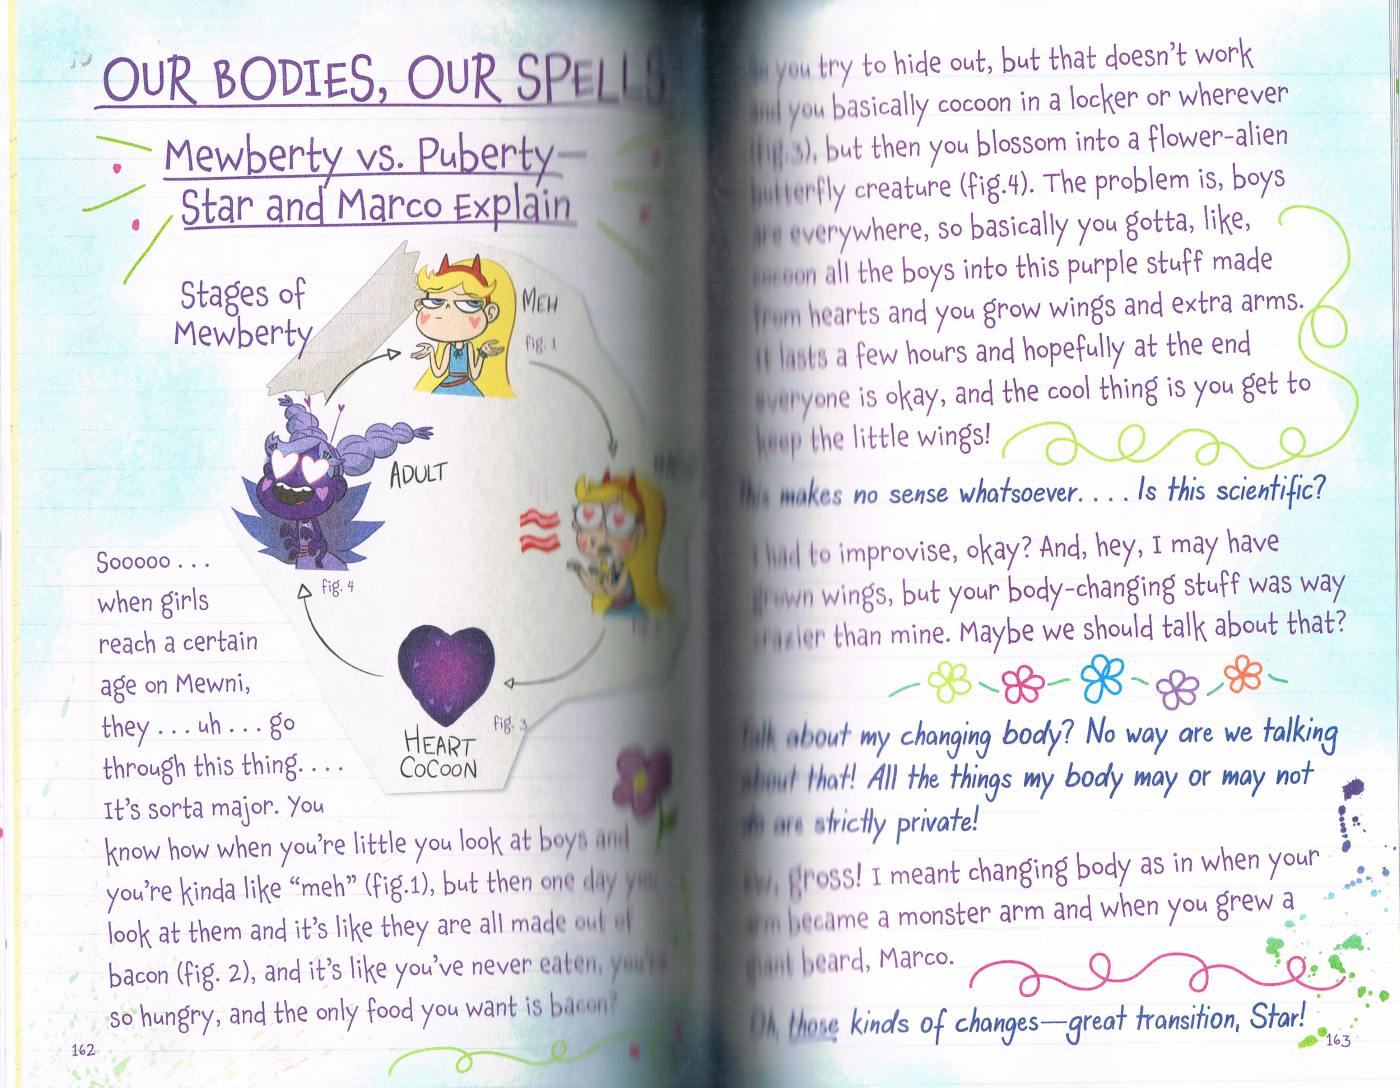 OUR BODIES, OUR SPELLS
Mewberty vs. Puberty—
Star and Marco Explain
Stages of
Mewberty
MEH
fig. 1
ADULT
fig. 4
HEART
COCOON
fig. 3
Sooooo . . .
when girls
reach a certain
age on Mewni,
they . . . uh . . . go
through this thing. . . .
It's sorta major. You
know how when you're little you look at boys and
you're kinda like “meh” (fig.1), but then one day you
look at them and it's like they are all made out of
bacon (fig. 2), and it's like you've never eaten, you're
so hungry, and the only food you want is bacon?
162
you try to hide out, but that doesn't work
and you basically cocoon in a locker or wherever
(fig.3), but then you blossom into a flower-alien
butterfly creature (fig.4). The problem is, boys
are everywhere, so basically you gotta, like,
cocoon all the boys into this purple stuff made
from hearts and you grow wings and extra arms.
It lasts a few hours and hopefully at the end
everyone is okay, and the cool thing is you get to
keep the little wings!
This makes no sense whatsoever. . . . Is this scientific?
I had to improvise, okay? And, hey, I may have
grown wings, but your body-changing stuff was way
crazier than mine. Maybe we should talk about that?
Talk about my changing body? No way are we talking
about that! All the things my body may or may not
do are strictly private!
Ew, gross! I meant changing body as in when your
arm became a monster arm and when you grew a
giant beard, Marco.
Oh, those kinds of changes—great transition, Star!
163